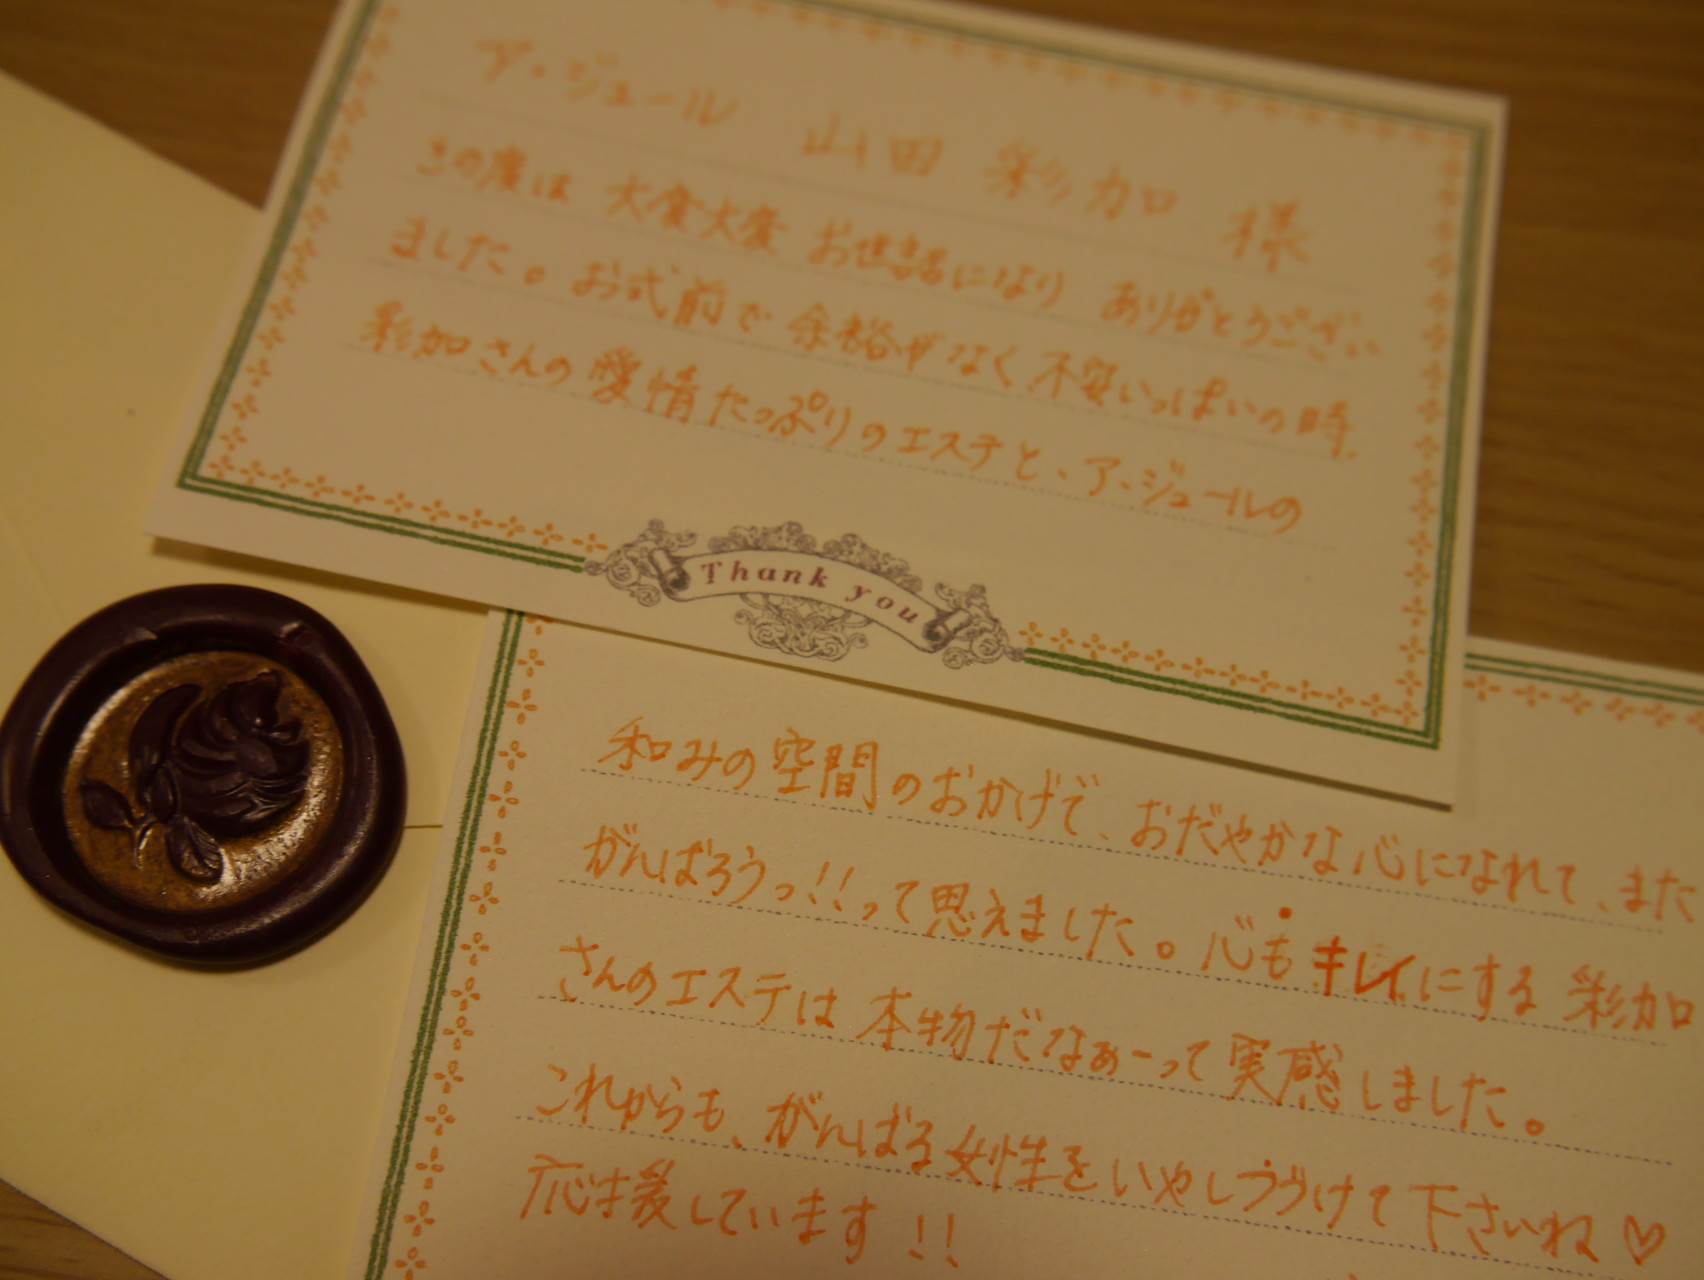 ア・ジュール 山田 彩加 様
この度は 大変大変 お世話になり ありがとうござい
ました。お式前で 余裕がなく 不安いっぱいの時、
彩加さんの愛情たっぷりのエステと、ア・ジュールの
Thank you
和みの空間のおかげで、おだやかな心になれて、また
がんばろうっ!!って思えました。心もキレイにする 彩加
さんのエステは 本物だなぁーって実感しました。
これからも、がんばる女性をいやしつづけて下さいね♡
応援しています!!